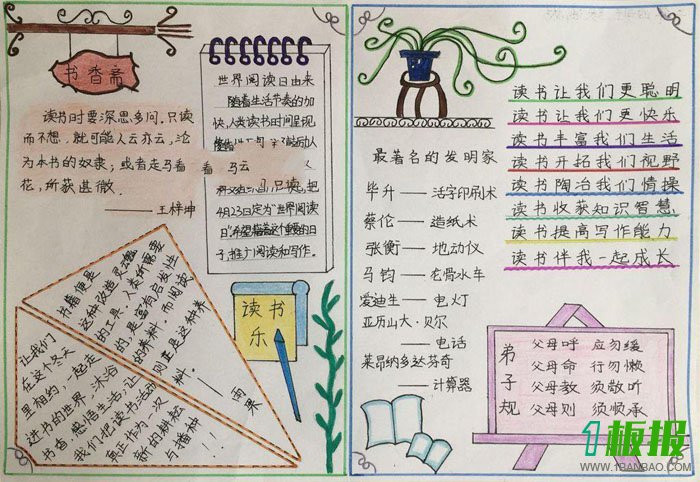 书香斋
读书时要深思多问。只读
而不想，就可能人云亦云，沦
为本书的奴隶；或者走马看
花，所获甚微。
——王梓坤
世界阅读日由来
随着生活节奏的加
快，人类读书时间呈现
4月23日定为“世界阅读
日”，希望藉着这个重要的日
子，推广阅读和写作。
书籍便是
这种改造灵魂
的工具。人类所需要
的，是富有启发性
的养料。而阅读，
则正是这种养
料。
——雨果
让我们
在这个冬天
里相约，一起走
进书的世界，沐浴
书香，感悟生活，让
我们把读书活动
真正作为一次
新的耕耘
与播种
!!!
读书
乐
最著名的发明家
毕升——活字印刷术
蔡伦——造纸术
张衡——地动仪
马钧——龙骨水车
爱迪生——电灯
亚历山大·贝尔
——电话
莱昂纳多达芬奇
——计算器
读书让我们更聪明
读书让我们更快乐
读书丰富我们生活
读书开拓我们视野
读书陶冶我们情操
读书收获知识智慧
读书提高写作能力
读书伴我一起成长
弟子规
父母呼 应勿缓
父母命 行勿懒
父母教 须敬听
父母则 须顺承
1板报
WWW.1BANBAO.COM